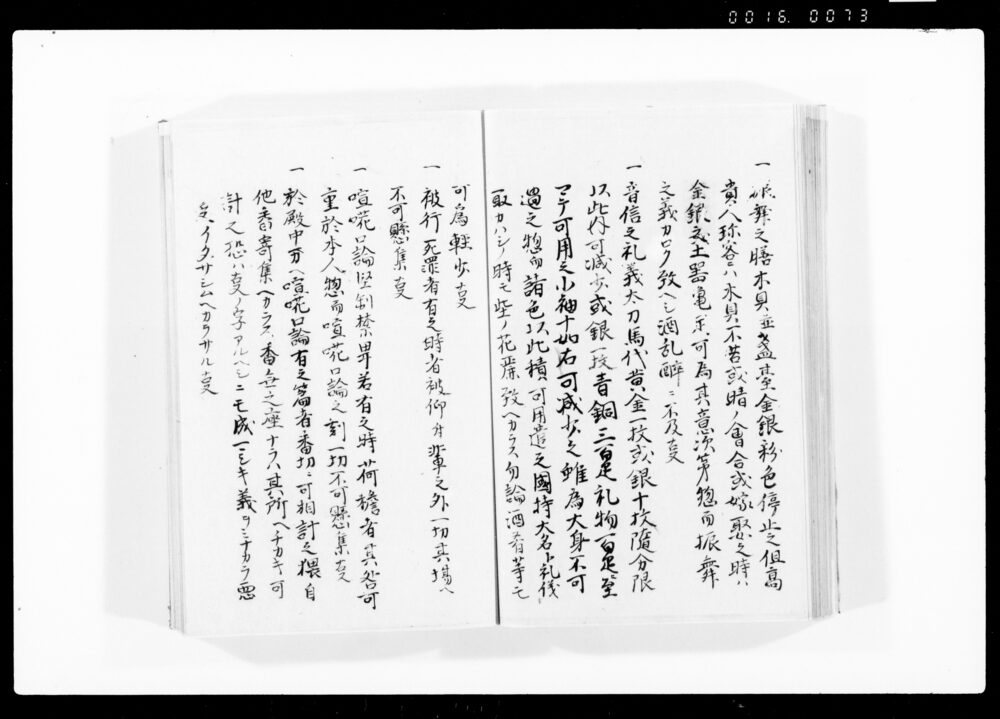 0016. 0073
一 振舞之膳木具並盞臺金銀彩色停止之但高
貴人珍客ハ木具不苦或晴ノ會合或嫁娶之時ハ
金銀或土器亀足可為其意次第惣而振舞
之義カロク致ヘシ酒乱醉ニ不及事
一 音信之礼義太刀馬代黄金一枚或銀十枚隨分限
以此内可減少或銀一枚青銅三百疋礼物百疋至
マテ可用之小袖十如右可减少之雖為大身不可
過之惣而諸色以此積可用遣之國持大名ト礼儀
取カハシノ時モ些ノ花麗致ヘカラス勿論酒肴等モ
可為軽少事
一 被行死罪者有之時者被仰付輩之外一切其場ヘ
不可懸集事
一 喧花口論堅制禁畢若有之時荷擔者其咎可
重於本人惣而喧花口論之刻一切不可懸集事
一 於殿中万ヘ喧花口論有之節者番切ニ可相計之猥自
他番寄集ヘカラス番無之座ナラハ其所ヘチカキ可
計之恐ハ事ノ字アルヘシニモ成一ミシキ義ヲミナカラ思
免イタサシムヘカラサル事